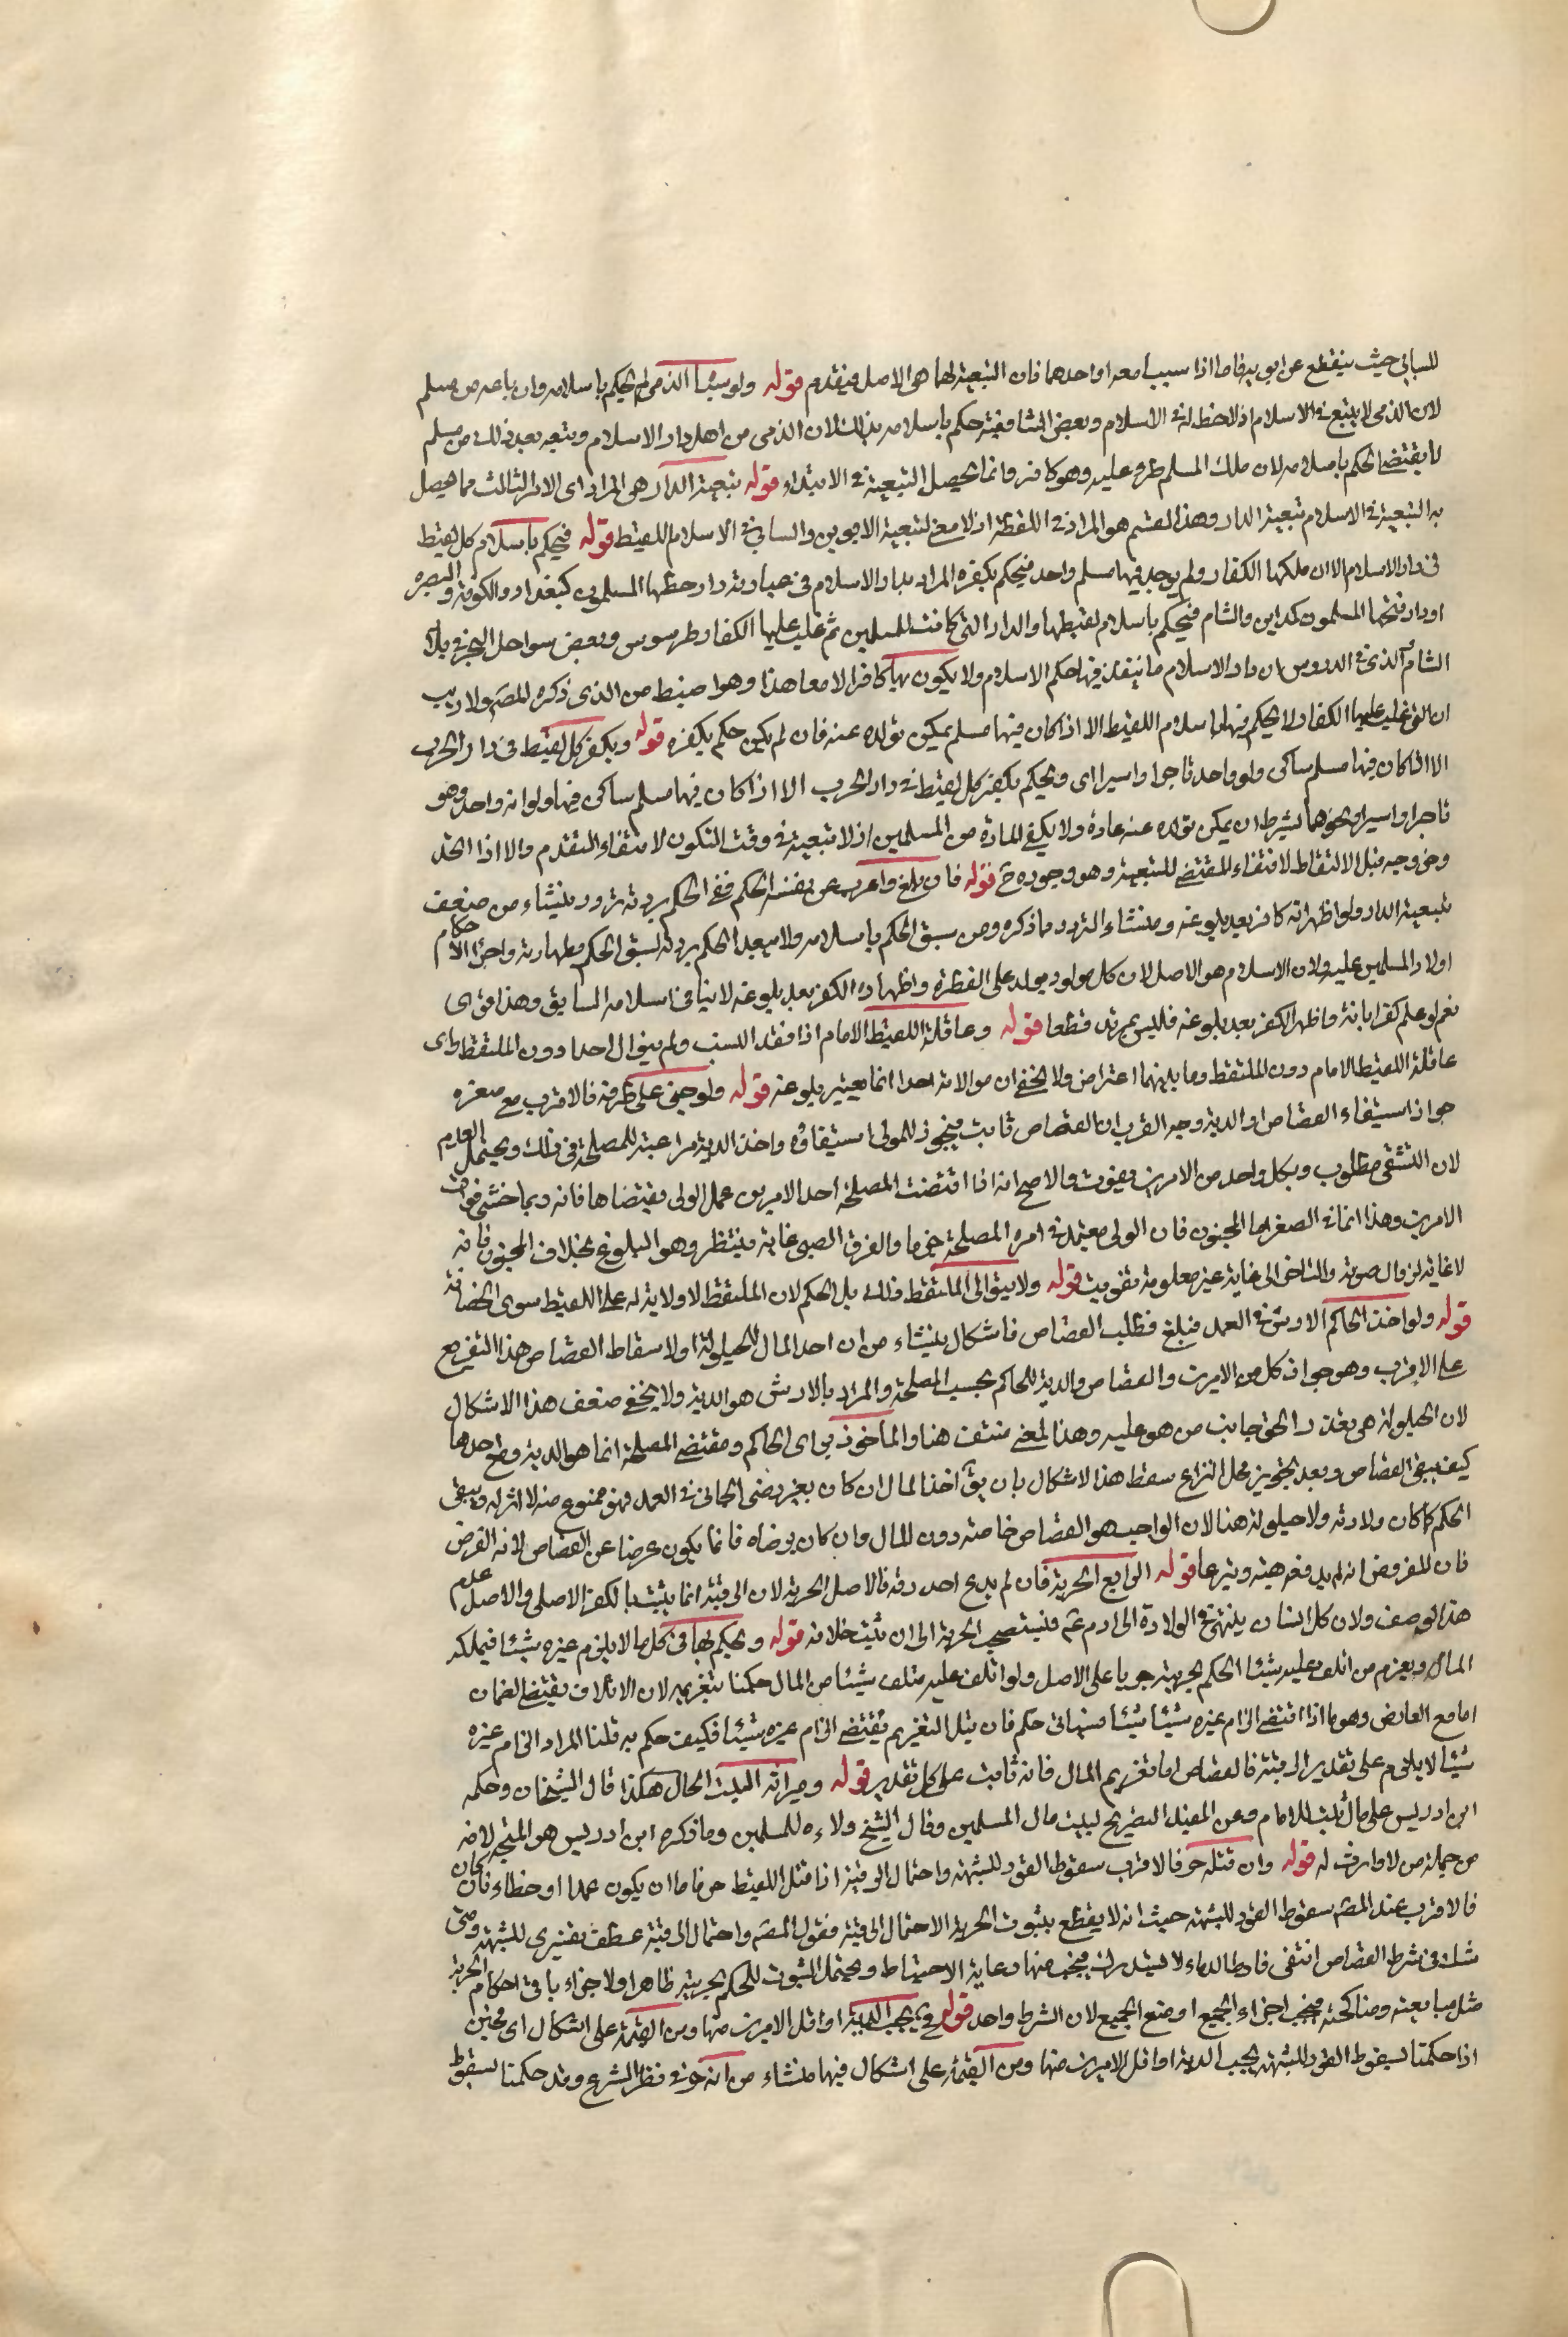 للسابي حيث ينقطع عن ابويه فاما اذا سبيا معه او احدهما فان التبعية لهما هي الاصل فيقدم قوله ولو سباه الذمي لم يحكم باسلامه وان باعه من مسلم
لان الذمي لا يتبع في الاسلام اذ لا حظ له في الاسلام وبعض الشافعية حكم باسلامه بذلك لان الذمي من اهل دار الاسلام وبيعه بعد ذلك من مسلم
لا يقتضي الحكم باسلامه لان ملك المسلم طرء عليه وهو كافر وانما تحصل التبعية في الابتداء قوله تبعية الدار هي المراد اي الامر الثالث مما يحصل
به التبعية في الاسلام تبعية الدار وهذا القسم هو المراد في اللقطة اذ لا معنى لتبعية الابوين والسابي في الاسلام للقيط قوله فيحكم باسلام كل لقيط
في دار الاسلام الا ان ملكها الكفار ولم يوجد فيها مسلم واحد فيحكم بكفره المراد بدار الاسلام في عبارته دار خطها المسلمون كبغداد والكوفة والبصره
او دار فتحها المسلمون كمداين والشام فيحكم باسلام لقيطها والدار التي كانت للمسلمين ثم غلب عليها الكفار طرسوس وبعض سواحل البحر في بلاد
الشام الذي في الدروس ان دار الاسلام ما ينفذ فيها حكم الاسلام ولا يكون بها كافر الا معاهدا وهو اضبط من الذي ذكره المصم ولا ريب
ان التي غلب عليها الكفار لا يحكم فيها باسلام اللقيط الا اذا كان فيها مسلم يمكن تولده عنه فان لم يكن حكم بكفره قوله وبكفر كل لقيط في دار الحرب
الا اذا كان فيها مسلم ساكن ولو واحد تاجرا او اسيرا اي ويحكم بكفر كل لقيط في دار الحرب الا اذا كان فيها مسلم ساكن فيها ولو انه واحد وهو
تاجر او اسير او نحوهما بشرط ان يمكن تولده عنه عادة ولا يكفي المارة من المسلمين اذ لا تبعية في وقت التكون لانتفاء المتقدم والا اذا اتحد
وخروجه قبل الالتقاط لانتفاء المقتضي للتبعية وهو وجوده ح قوله فان بلغ واعرب عن نفسه الحكم ففي الحكم بردته تردد ينشاء من ضعف
تبعية الدار ولو اظهر انه كافر بعد بلوغه ومنشاء التردد ما ذكره ومن سبق الحكم باسلامه ولا يبعد الحكم بردته لسبق الحكم بطهارته واجراء الاحكام
اولاد المسلمين عليه ولان الاسلام هو الاصل لان كل مولود يولد على الفطرة واظهاره الكفر بعد بلوغه لا ينافي اسلامه السابق وهذا قوي
نعم لو علم كفر ابائه واظهر الكفر بعد بلوغه فليس بمرتد قطعا قوله وعاقلة اللقيط الامام اذا فقد النسب ولم يتوال احدا دون الملتقط واي
عاقلة اللقيط الامام دون الملتقط وما بينهما اعتراض ولا يخفى ان موالاته احدا انما يعتبر بلوغه قوله ولو جنى على طرفه فالاقرب مع صغره
جواز استيفاء القصاص او الدية وجه القرب ان القصاص ثابت فيجوز للمولى استيفاؤه واخذ الدية مراعية للمصلحة في ذلك ويحتمل العدم
لان التشفي مطلوب وبكل واحد من الامرين يفوت والاصح انه اذا اقتضت المصلحة احد الامرين عمل الولي بمقتضاها فانه ربما خشي فوات
الامرين وهذا انما في الصغر اما المجنون فان الولي معتمد في امره المصلحة جزما والفرق الصبي غاية فينتظر وهو البلوغ بخلاف المجنون فانه
لا غاية لزوال صوته والتاخير الى غاية غير معلومة تفويت قوله ولا يتولى الملتقط ذلك بل الحكم لان الملتقط لا ولاية له على اللقيط سوى الحضانة
قوله ولو اخذ الحاكم الارش في العمد فبلغ فطلب القصاص فاشكال ينشاء من ان احد المال للحيلولة او لاسقاط القصاص هذا التفريع
على الاقرب وهو جواز كل من الامرين والقصاص والدية للحاكم بحسب المصلحة والمراد بالارش هو الدية ولا يخفى ضعف هذا الاشكال
لان الحيلولة هي تعذر الحق جانب من هو عليه وهذا المعنى منتف هنا والماخوذ براى الحاكم ومقتضى المصلحة انما هو الدية وطع احدهما
كيف يبقى القصاص وبعد تحويز محل النزاع سقط هذا الاشكال بان يق اخذ المال ان كان بغير رضى الجاني في العمد فهو ممنوع منه لا اثر له ويبقى
الحكم كما كان ولادته ولا حيلولة هنا لان الواجب هو القصاص خاصة دون المال وان كان برضاه فانما يكون عوضا عن القصاص لانه الفرض
فان المفروض انه لم يدفعه هبة وتبرعا قوله الرابع الحرية فان لم يدع احد رقه فالاصل الحرية لان الرقية انما يثبت بالكفر الاصلي والاصل عدم
هذا الوصف ولان كل انسان ينتهي في الولادة الى ادم ع فيستصحب الحرية الى ان يثبت خلافه قوله ويحكم بها في كل ما لا يلزم غيره شيئا فيملكه
المال ويغرم من اتلف عليه شيئا الحكم بحريته جريا على الاصل ولو اتلف عليه متلف شيئا من المال حكمنا بتغريمه لان الاتلاف يقتضي الضمان
اما مع العارض وهو ما اذا اقتضى الزام غيره شيئا شيئا فسياتي حكم فان قيل التغريم يقتضي الزام غيره شيئا فكيف حكم به قلنا المراد الزام غيره
شيئا لا يلزم على تقدير الرقية فالقصاص اما تغريم المال فانه ثابت على كل تقدير قوله وميراثه لبيت الحال هكذا قال الشيخان وحكمه
ابن ادريس على مال بيت للامام وعن المفيد التصريح لبيت مال المسلمين وقال الشيخ ولاءه للمسلمين وما ذكره ابن ادريس هو المتجه لانه
من جملة من لا وارث له قوله وان قتله حر فالاقرب سقوط القود للشبهة واحتمال الرقية اذا قتل اللقيط حر فاما ان يكون عمدا او خطاء فان كان
فالاقرب عند المصم سقوط القود للشبهة حيث انه لا يقطع بثبوت الحرية الاحتمال الرقية فقول المصم واحتمال الرقية عطف تفسيري للشبهة ومتى
شك في شرط القصاص انتفى فارط الدماء لا يستدرك فيجب فيها رعاية الاحتياط ويحتمل الثبوت للحكم بحريته ظاهرا ولاجزاء باقي احكام الحرية
مثل مبايعته ومناكحته فيجب اجزاء الجميع او منع الجميع لان الشرط واحد قوله فيجب الدية او اقل الامرين منها ومن القيمة على اشكال اي فحين
اذا حكمنا لسقوط القود للشبهة يجب الدية او اقل الامرين منها ومن القيمة على اشكال فيها منشاء من انه حر في نظر الشرع وقد حكمنا لسقوط